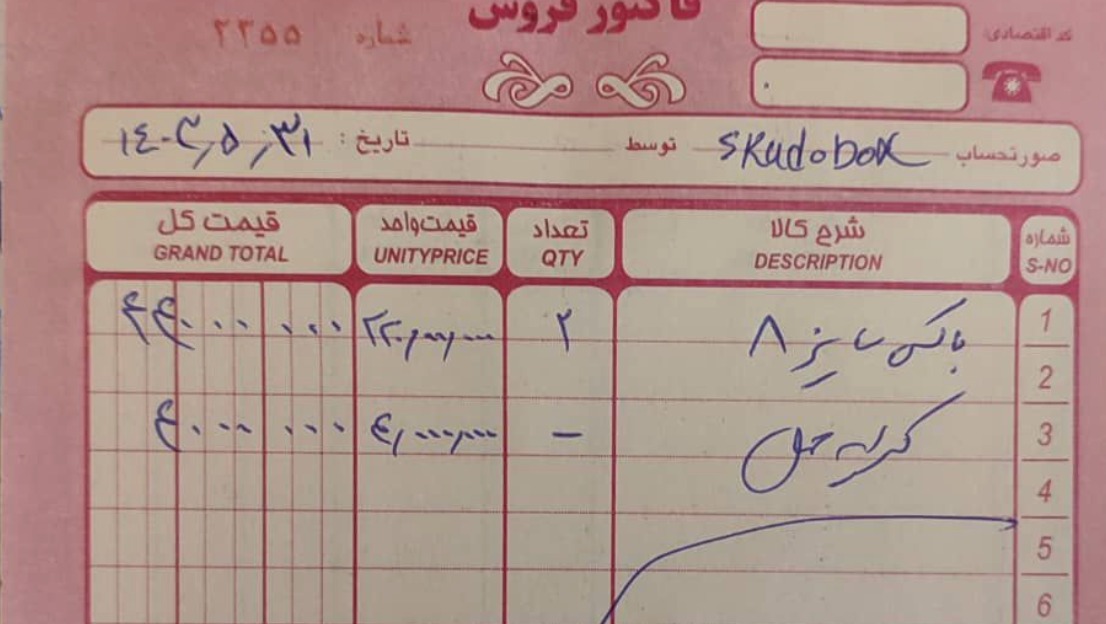 فاکتور فروش
شماره ۲۳۵۵
کد اقتصادی:
صورتحساب skudobox توسط تاریخ: ۱۴۰۳٫۵٫۳۱
شماره شرح کالا تعداد قیمت واحد قیمت کل
S-NO DESCRIPTION QTY UNITYPRICE GRAND TOTAL
1 باکس سایز ۸ ۲ ۲۲۰,۰۰۰,۰۰۰ ۴۴۰۰۰۰۰۰۰
2
3 کرایه حمل - ۴,۰۰۰,۰۰۰ ۴۰۰۰۰۰۰
4
5
6